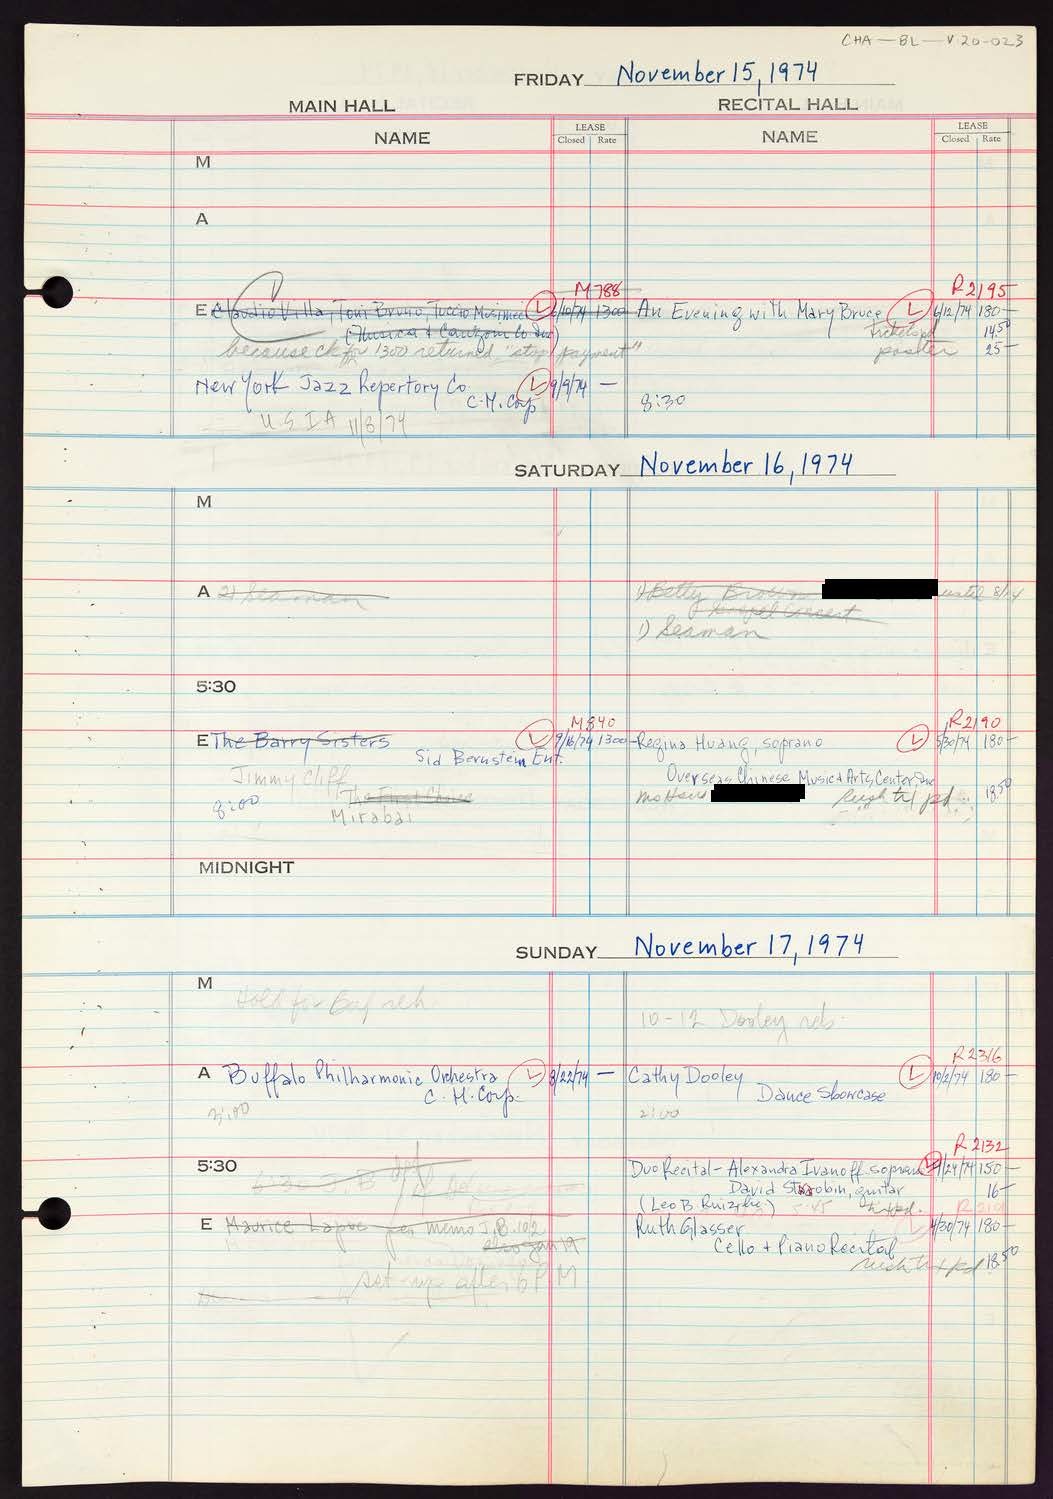 CHA-BL-V.20-023
FRIDAY November 15, 1974
MAIN HALL RECITAL HALL
NAME LEASE Closed Rate NAME LEASE Closed Rate
M
A
M 788 R 2195
E Claudio Villa, Toni Bruno, Tuccio Musumeci L 6/10/74 1300 An Evening with Mary Bruce L 6/12/74 180-
(Musica & Canzoni Co Inc) 14.50
because ck for 1300 returned "stop payment" poster 25-
New York Jazz Repertory Co. L 9/9/74 -
C.M. Corp 8:30
U.S.I.A 11/8/74
SATURDAY November 16, 1974
M
A 2) Seaman 1) Betty Brown until 8/14
Gospel Concert
1) Seaman
5:30
M 840 R 2190
E The Barry Sisters L 9/16/74 1300- Regina Huang, soprano L 5/30/74 180-
Sid Bernstein Ent.
Jimmy Cliff Overseas Chinese Music & Arts Center, Inc
8:00 The First Choice 18.50
Mirabai
MIDNIGHT
SUNDAY November 17, 1974
M
Hold for Buf reh
10-12 Dooley reh.
R 2316
A Buffalo Philharmonic Orchestra L 8/22/74 - Cathy Dooley L 10/2/74 180-
C.H. Corp. Dance Showcase
3:00 2:00
R 2132
5:30 Duo Recital - Alexandra Ivanoff, soprano L 1/24/74 150-
David Starobin, guitar 16-
(Leo B. Ruiz, 5:45
E Maurice per memo J.B. 10/2 Ruth Glasser L 4/30/74 180-
also Jan 19 Cello + Piano Recital
set-up after 6 PM 18.50